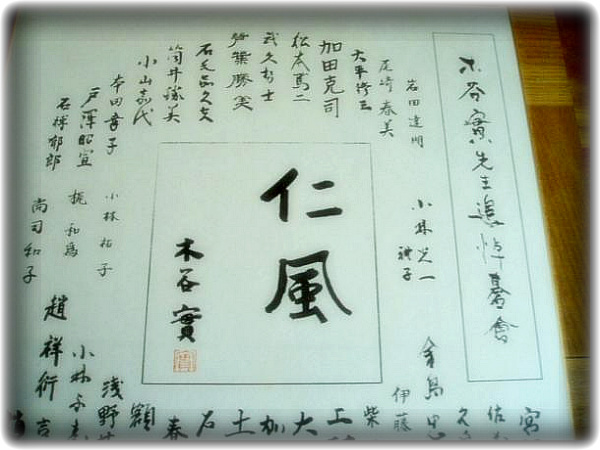 木谷實先生追悼碁會
岩田達明
尾崎春美
大平修三
加田克司
松本篤二
武久勢士
勝美
石毛嘉久夫
筒井勝美
小山嘉代
本田幸子
戸澤昭宣
石榑郁郎
小林光一
禮子
仁風
木谷實
小林祐子
梶和為
尚司和子
宮
佐
久
金島忠
伊藤
柴
工
大
加
土
石
春
額
浅野
小林千
趙祥衍
吉